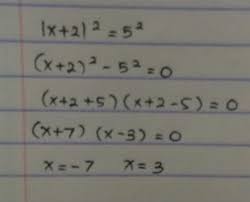 |x+2|² = 5²
(x+2)² - 5² = 0
(x+2+5) (x+2-5) = 0
(x+7) (x-3) = 0
x = -7 x = 3